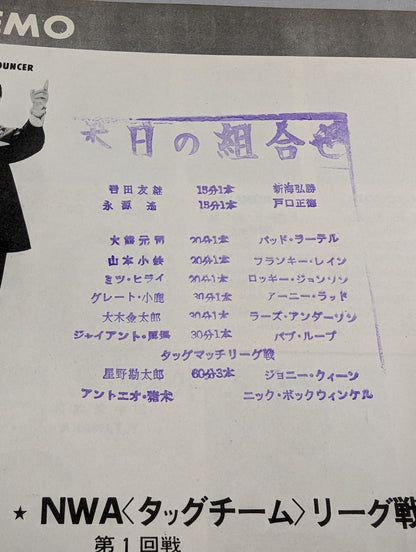 EMO
OUNCER
本日の組合せ
15分1本 新海弘勝
永源遙 15分1本 戸口正徳
大熊元司 20分1本 バッド・ラーテル
山本小鉄 20分1本 フランキー・レイン
ミツ・ヒライ 20分1本 ロッキー・ジョンソン
グレート・小鹿 30分1本 アーニー・ラッド
大木金太郎 30分1本 ラーズ・アンダーソン
ジャイアント・馬場 30分1本 バブ・ループ
タッグマッチリーグ戦
星野勘太郎 60分3本 ジョニー・クィーン
アントニオ・猪木 ニック・ボックウィンケル
★ NWA〈タッグチーム〉リーグ戦
第1回戦